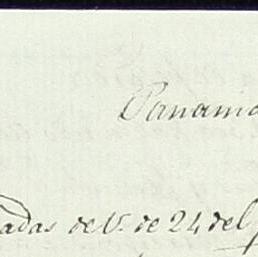 Panamá
adas de V. de 24 del p